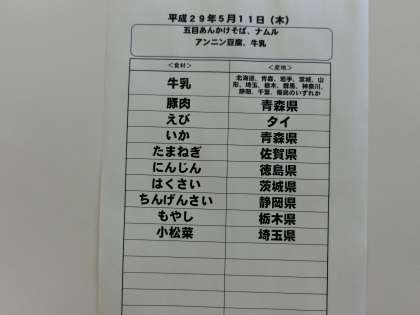 平成29年5月11日(木)
五目あんかけそば、ナムル
アンニン豆腐、牛乳
<食材> <産地>
牛乳 北海道、青森、岩手、茨城、山
形、埼玉、栃木、群馬、神奈川、
静岡、千葉、福島のいずれか
豚肉 青森県
えび タイ
いか 青森県
たまねぎ 佐賀県
にんじん 徳島県
はくさい 茨城県
ちんげんさい 静岡県
もやし 栃木県
小松菜 埼玉県